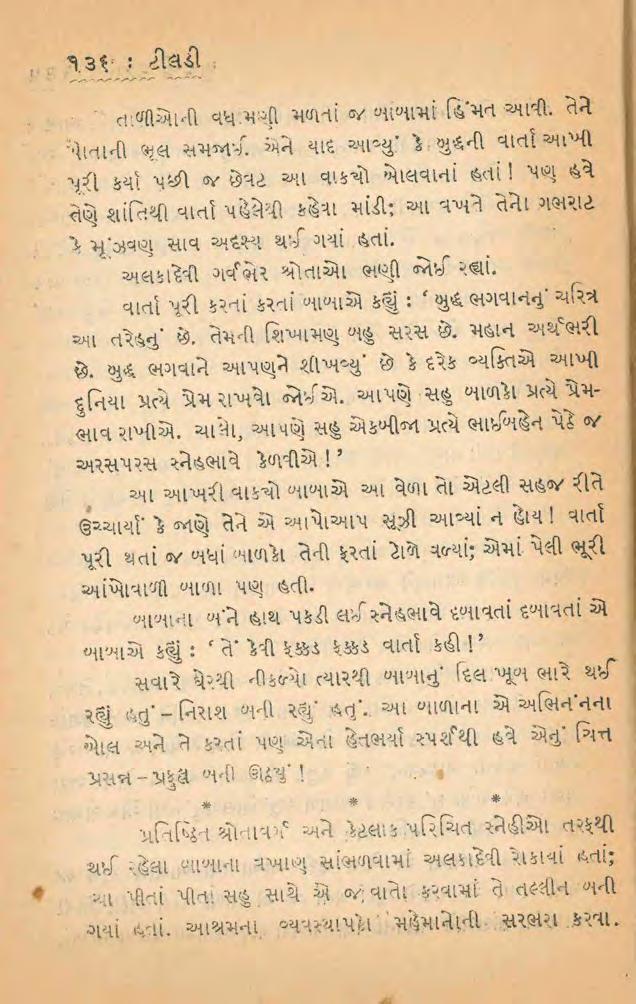 ૧૩૬ : ટીલડી
તાળીઓની વધામણી મળતાં જ બાબામાં હિંમત આવી. તેને
પોતાની ભૂલ સમજાઈ. એને યાદ આવ્યું કે બુદ્ધની વાર્તા આખી
પૂરી કર્યા પછી જ છેવટ આ વાકચો બોલવાનાં હતાં! પણ હવે
તેણે શાંતિથી વાર્તા પહેલેથી કહેવા માંડી; આ વખતે તેનો ગભરાટ
કે મૂંઝવણ સાવ અદૃશ્ય થઈ ગયાં હતાં.
અલકાદેવી ગર્વભેર શ્રોતાઓ ભણી જોઈ રહ્યાં.
વાર્તા પૂરી કરતાં કરતાં બાબાએ કહ્યું : ‘ બુદ્ધ ભગવાનનું ચરિત્ર
આ તરેહનું છે. તેમની શિખામણ બહુ સરસ છે. મહાન અર્થભરી
છે. બુદ્ધ ભગવાને આપણને શીખવ્યું છે કે દરેક વ્યક્તિએ આખી
દુનિયા પ્રત્યે પ્રેમ રાખવો જોઈએ. આપણે સહુ બાળકો પ્રત્યે પ્રેમ-
ભાવ રાખીએ. ચાલો, આપણે સહુ એકબીજા પ્રત્યે ભાઈબહેન પેઠે જ
અરસપરસ સ્નેહભાવે કેળવીએ!’
આ આખરી વાકચો બાબાએ આ વેળા તો એટલી સહજ રીતે
ઉચ્ચાર્યાં કે જાણે તેને એ આપોઆપ સૂઝી આવ્યાં ન હોય! વાર્તા
પૂરી થતાં જ બધાં બાળકો તેની ફરતાં ટોળે વળ્યાં; એમાં પેલી ભૂરી
આંખોવાળી બાળા પણ હતી.
બાબાના બંને હાથ પકડી લઈ સ્નેહભાવે દબાવતાં દબાવતાં એ
બાબાએ કહ્યું : ‘ તેં કેવી ફક્કડ ફક્કડ વાર્તા કહી!’
સવારે ઘેરથી નીકળ્યો ત્યારથી બાબાનું દિલ ખૂબ ભારે થઈ
રહ્યું હતું – નિરાશ બની રહ્યું હતું. આ બાળાના એ અભિનંદનના
બોલ અને તે કરતાં પણ એના હેતભર્યા સ્પર્શથી હવે એનું ચિત્ત
પ્રસન્ન – પ્રફુલ્લ બની ઊઠયું !
* * *
પ્રતિષ્ઠિત શ્રોતાવર્ગ અને કેટલાક પરિચિત સ્નેહીઓ તરફથી
થઈ રહેલા બાબાના વખાણ સાંભળવામાં અલકાદેવી રોકાયાં હતાં;
ચા પીતાં પીતાં સહુ સાથે એ જ વાતો કરવામાં તે તલ્લીન બની
ગયાં હતાં. આશ્રમના વ્યવસ્થાપકો મહેમાનોની સરભરા કરવા.